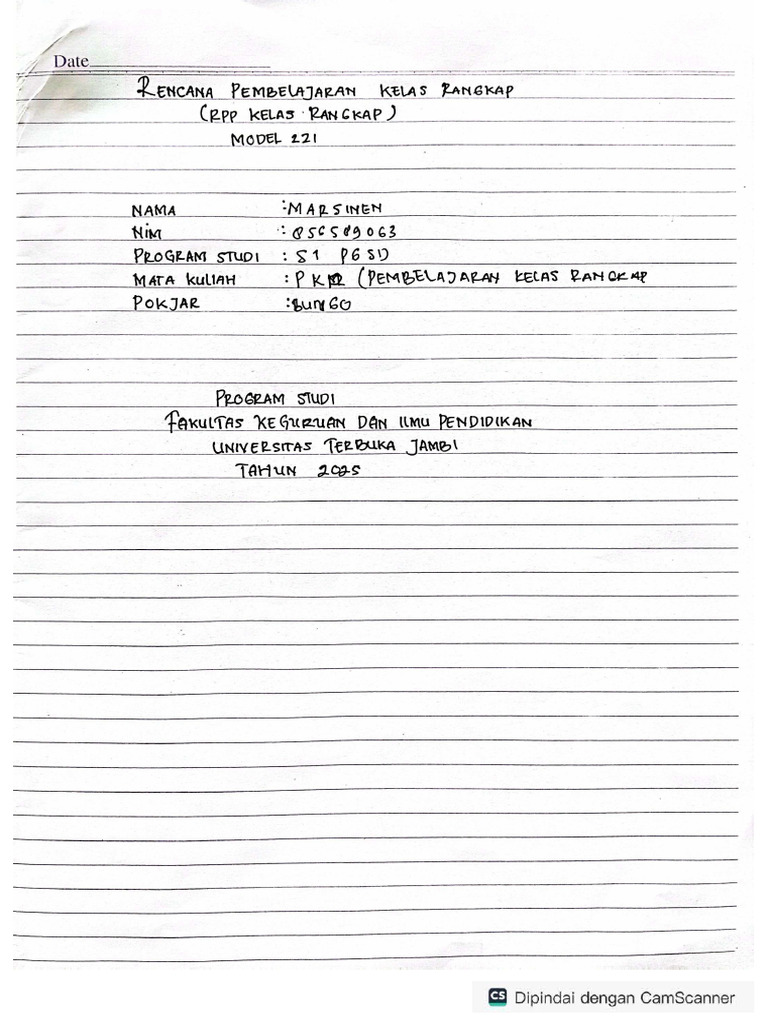 Date
RENCANA PEMBELAJARAN KELAS RANGKAP
(RPP KELAS RANGKAP)
MODEL 221
NAMA : MARSINEN
NIM : 856589063
PROGRAM STUDI : S1 PGSD
MATA KULIAH : PKR (PEMBELAJARAN KELAS RANGKAP
POKJAR : BUNGO
PROGRAM STUDI
FAKULTAS KEGURUAN DAN ILMU PENDIDIKAN
UNIVERSITAS TERBUKA JAMBI
TAHUN 2025
CS Dipindai dengan CamScanner